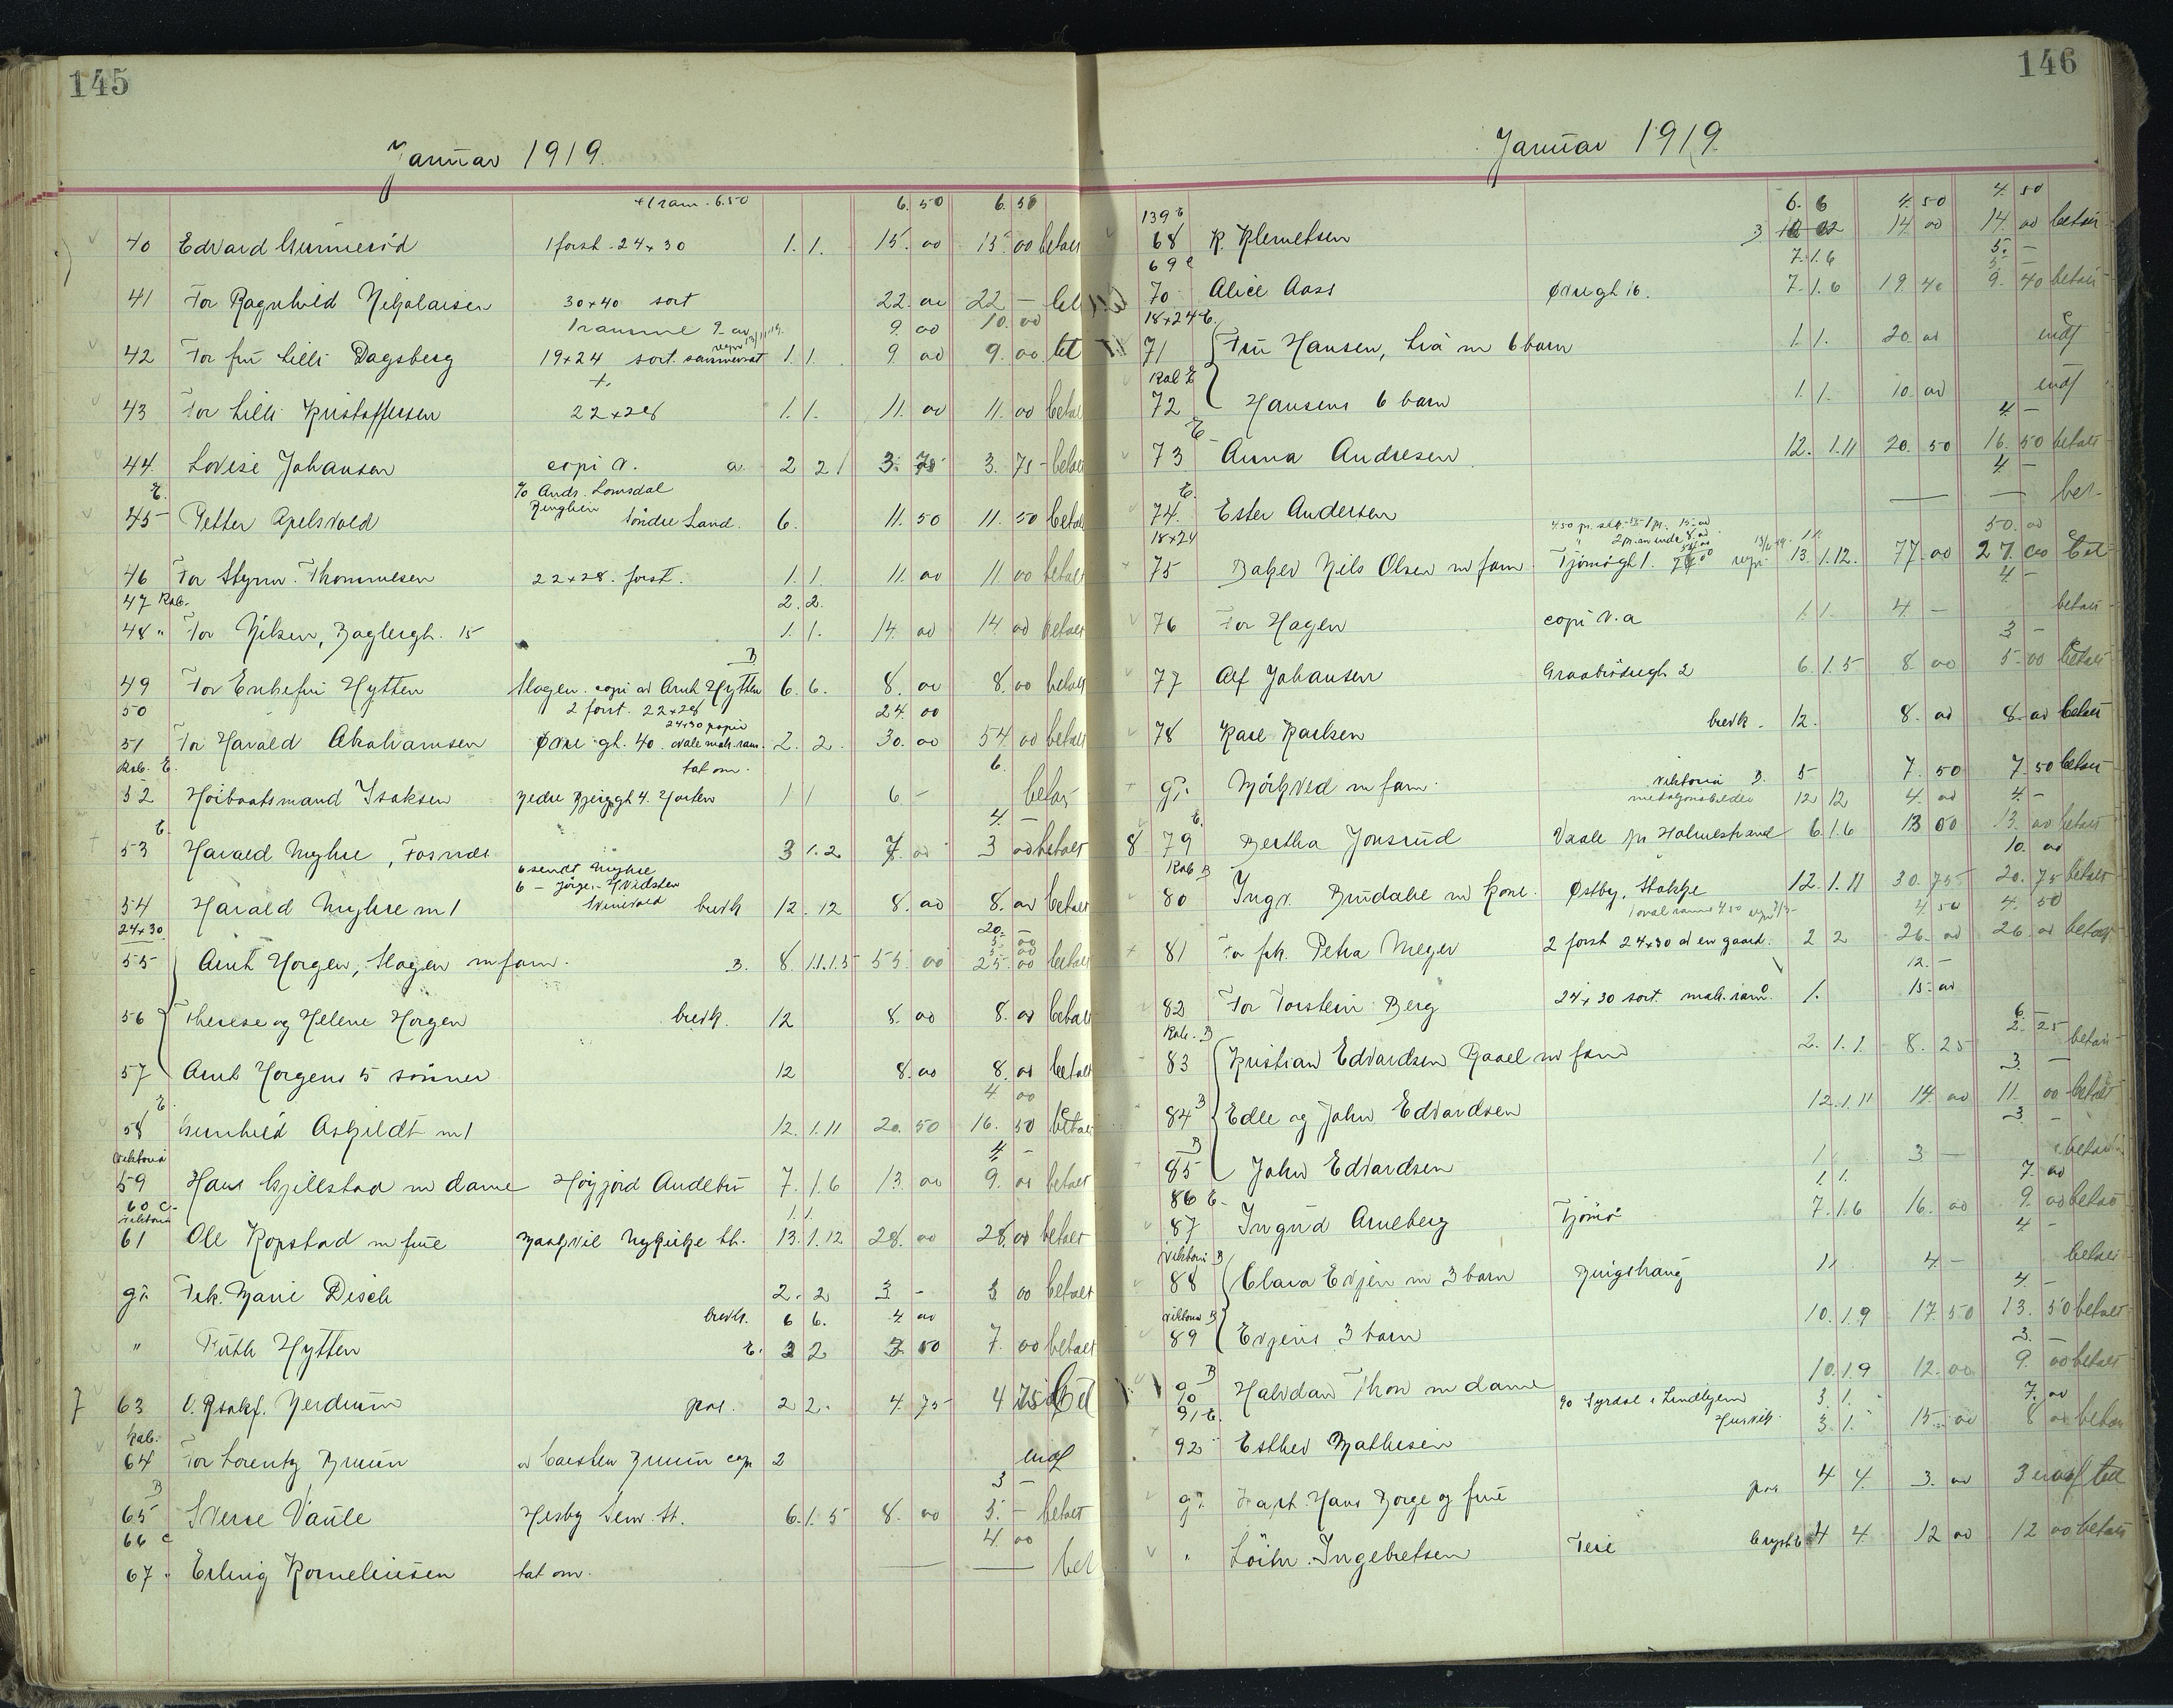 145
Januar 1919.
+ 1 ram. 6.50 6. 50 6. 50
40 Edvard Gunnerød 1 forst. 24x30 1. 1. 15. 00 15. 00 betalt
41 For Ragnhild Nikolaisen 30x40 sort 22. 00 22 —
1 ramme 9. 00 10. 00
42 For fru Lilli Dagsberg 19x24 sort. 1. 1. 9 00 9. 00 bet
43 For Lilli Kristoffersen 22x28 1. 1. 11. 00 11. 00 betalt
44. Lovise Johansen copi v. a. 2 2 3. 75 3. 75 betalt
E. % Andr. Lomsdal
45 Petter Apelsvold Søndre Land. 6. 11. 50 11. 50 betalt
46 For Styrm. Thommesen 22x28. forst. 1. 1. 11. 00 11. 00 betalt
47 Kab. 2. 2.
48 " For Nilsen, Baglergt. 15 1. 1. 14. 00 14. 00 betalt
B
49 For Enkefru Hytten Slagen. copi av Arnt Hytten 6. 6. 8. 00 8. 00 betalt
50 2 forst. 22x28 24. 00
24x30 papir
51 For Harald Abrahamsen Øvre gt. 40. ovale mah. ram. 2. 2. 30. 00 54. 00 betalt
Kab. E. tat om. 6.
52 Høibaatsmand Isaksen 4. Horten 1 1 6 — betalt
E. 4. —
53 Harald Myhre, 3 1. 2 7. 00 3 00 betalt
6 sendt Myhre
54 Harald Myhre m 1 brevk 12. 12 8. 00 8. 00 betalt
24x30 20. —
55 Arnt Horgen, Slagen m fam. B. 8. 1.1.1.5 55. 00 25. 00 betalt
56 Therese og Helene Horgen brevk. 12 8. 00 8. 00 betalt
57 Arnt Horgens 5 sønner 12 8. 00 8. 00 betalt
E. 4 00
58 Gunhild Askildt m 1 12. 1. 11 20. 50 16. 50 betalt
Viktoria 4 —
59 Hans Gjillestad m dame Høyjord Andebu 7. 1. 6 13. 00 9. 00 betalt
60 C. 1. 1.
Viktoria
61 Ole Kopstad m frue Nykirke st. 13. 1. 12 28. 00 28. 00 betalt
gr. Frk. Marie Disch 2. 2 3 — 3 00 betalt
brevk. 6 6. 4 00
" Ruth Hytten E. 2 2 3. 50 7. 00 betalt
7 63 Nerdrum pos. 2 2. 4. 75 4 75 bet
Kab.
64 For Lorentz Bruun av Carsten Bruun copi 2 endf
B 3 —
65 Sverre Vaule Hesby Sem St. 6. 1. 5 8. 00 5. — betalt
66 C 4. 00
67 Erling Korneliussen tat om. — — bet
146
Januar 1919.
139 E 6. 6 4. 50 4. 50
68 K. Klemetsen 3 14 00 14. 00 betalt
69 C 7. 1. 6 5. —
70 Alice Aass Øvregt 16. 7. 1. 6 19. 40 9. 40 betalt
18x24 E.
71 Fru Hansen, Liå m 6 barn 1. 1. 20. 00 endf
Kab E
72 Hansens 6 barn 1. 1. 10. 00 endf
E 4. —
73 Anna Andresen 12. 1. 11 20. 50 16. 50 betalt
E. 4 —
74. Ester Andersen — — bet
18x24 50. 00
75 Baker Nils Olsen m fam. Tjømøgt 1. 13. 1. 12. 77. 00 27. 00 bet
4 —
76 For Hagen copi v. a 1. 1. 4. — betalt
3 —
77 Alf Johansen Graabrødregt 2 6. 1. 5 8. 00 5. 00 betalt
78 Karl Karlsen brevk. 12. 8. 00 8. 00 betalt
Viktoria B. 5 7. 50 7. 50 betalt
gr. Mørkved m fam. medaljonsbilder 12 12 4. 00 4. —
E.
8 79 Bertha Jonsrud Vaale pr Holmestrand 6. 1. 6 13 00 13. 00 betalt
Kab B 10. 00
80 Ingv. Brudalie m kone. Østby, Stokke 12. 1. 11 30. 75 20. 75 betalt
1 oval ramme 4.50 4. 50 4. 50
81 For frk. Petra Meyer 2 forst 24x30 av en gaard. 2 2 26. 00 26. 00 betalt
12. —
82 For Torstein Berg 24x30 sort. mah. ram. 1. 15. 00
Kab. B 6. —
2. 25
83 Kristian Edvardsen Raael m fam 2. 1. 1. 8. 25 betalt
3. —
84 B Edle og John Edvardsen 12. 1. 11 14. 00 11. 00 betalt
B 3. —
85 John Edvardsen 1 3 — betalt
86 E. 1. 1. 7. 00
87 Ingrid Arneberg Tjømø 7. 1. 6 16. 00 9. 00 betalt
Viktoria B 4 —
88 Clara Evjen m 3 barn Ringshaug 1 1 4 — betalt
Viktoria B 4. —
89 Evjens 3 barn 10. 1. 9 17. 50 13. 50 betalt
B 3. —
90 Halvdan Thon m dame 10. 1. 9 12. 00 9. 00 betalt
91 E. 3. 1. 7. 00
92 Esther Mathesen Husvik. 3. 1. 15. 00 8 00 betalt
gr. Kapt. Hans Borge og frue pos 4 4. 3. 00 3
" Løitn. Ingebretsen Teie 4 4. 12 00 12 00 betalt